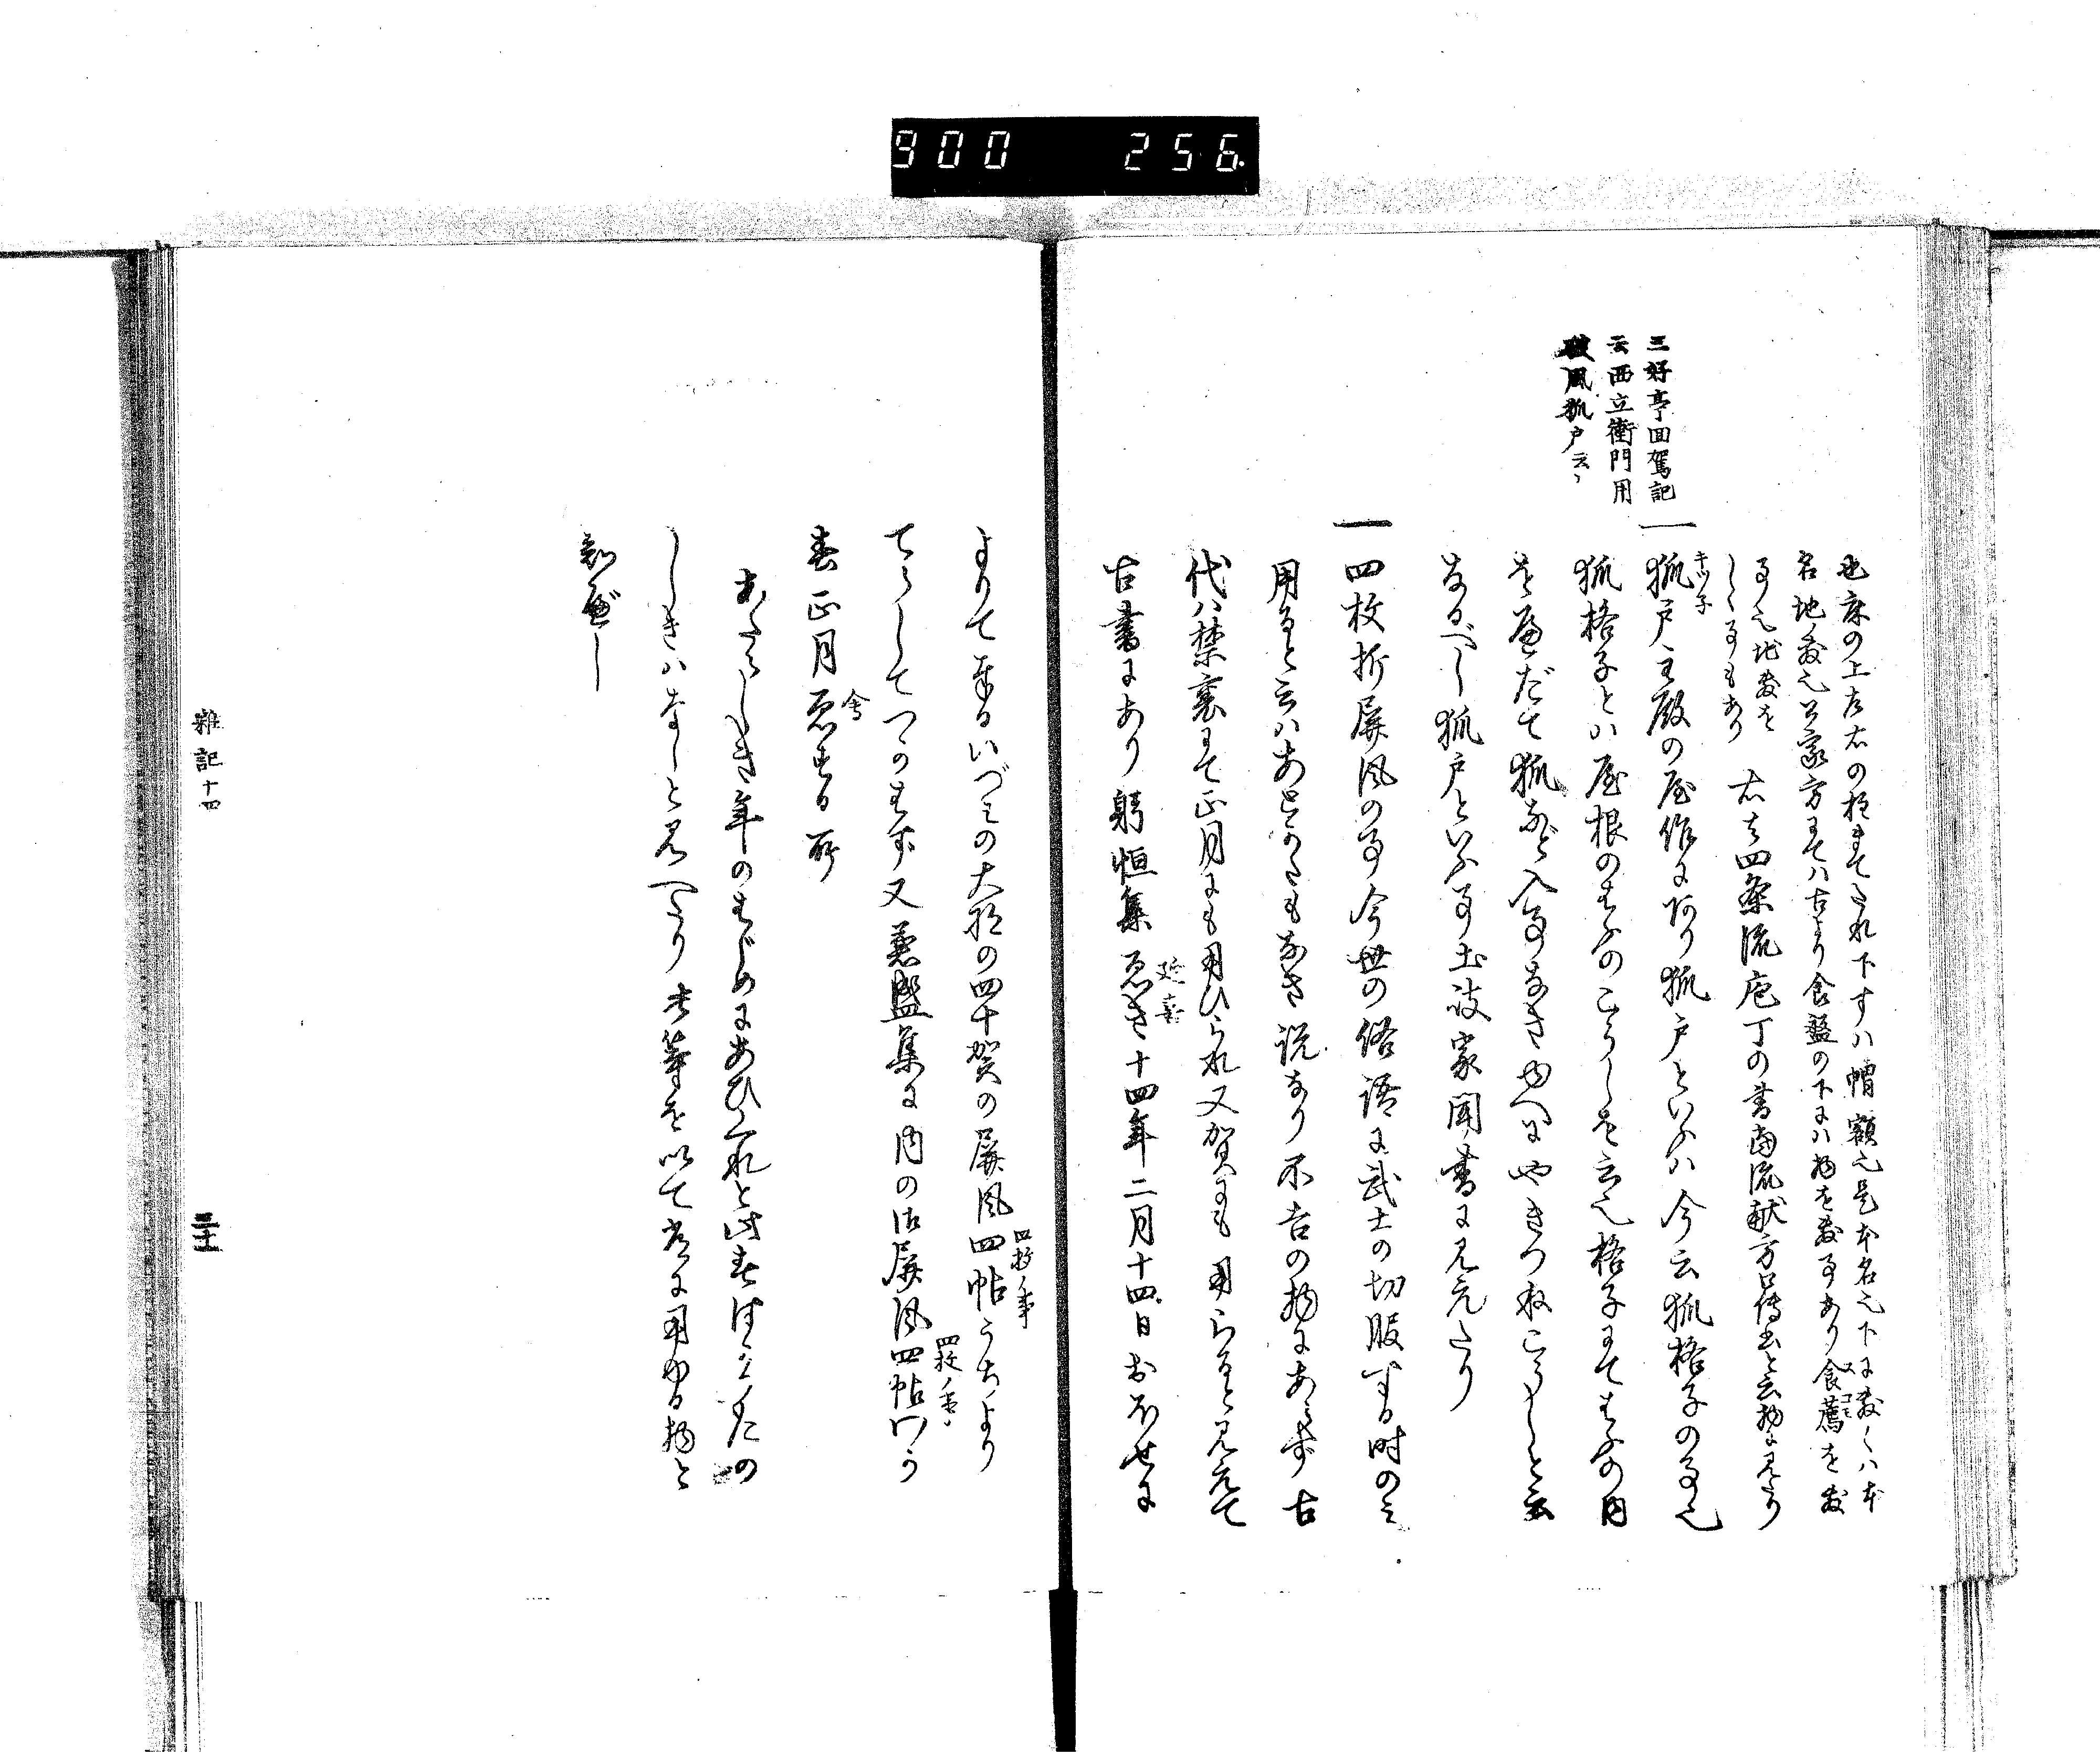 900 256
三好亭回駕記
云西立衛門用
破風狐戸云々
也床の上左右の柱まてたれ下すハ帽額也是本名也下に敷くハ本
名地敷也公家方にてハ古より食盤の下にハ物を敷事あり食薦を敷
スコモ
事也地敷を
しく事もあり
右ハ四条流庖丁の書当流献方口伝書と云物に見たり
一狐戸主殿の屋作にあり狐戸といふハ今云狐格子の事也
キツ子
狐格子とハ屋根のはふのこうしを云也格子にてはふの内
をへだて狐など入事なきゆへにやきつねこうしと云
なるべし狐戸といふ事土岐家聞書に見えたり
一四枚折屏風の事今世の俗語に武士の切腹する時のミ
用ると云ハあとかたもなき説なり不吉の物にあらず古
代ハ禁裏にて正月にも用ひられ又賀にも用らると見えて
古書にあり躬恒集ゑき十四年二月十四日おほせに
延喜
よりて奉るいづミの大将の四十賀の屏風四帖うちより
四枚ノ事
てうしてつかはす又兼盛集に内の御屏風四帖わか
四枚ノ事
春正月ゑする所
会
あたらしき年のはじめにあひくれと此春はかくたの
しきハなしと見へたり是等を以て常に用ゆる物と
知べし
雑記十四
三十二